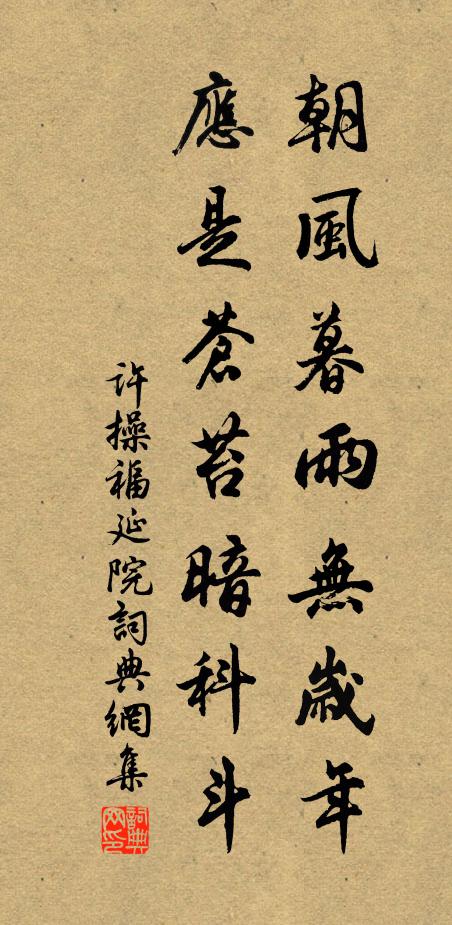 朝風暮雨無歲年
應是蒼苔暗科斗
許操福延院詞典網集
詞典網印